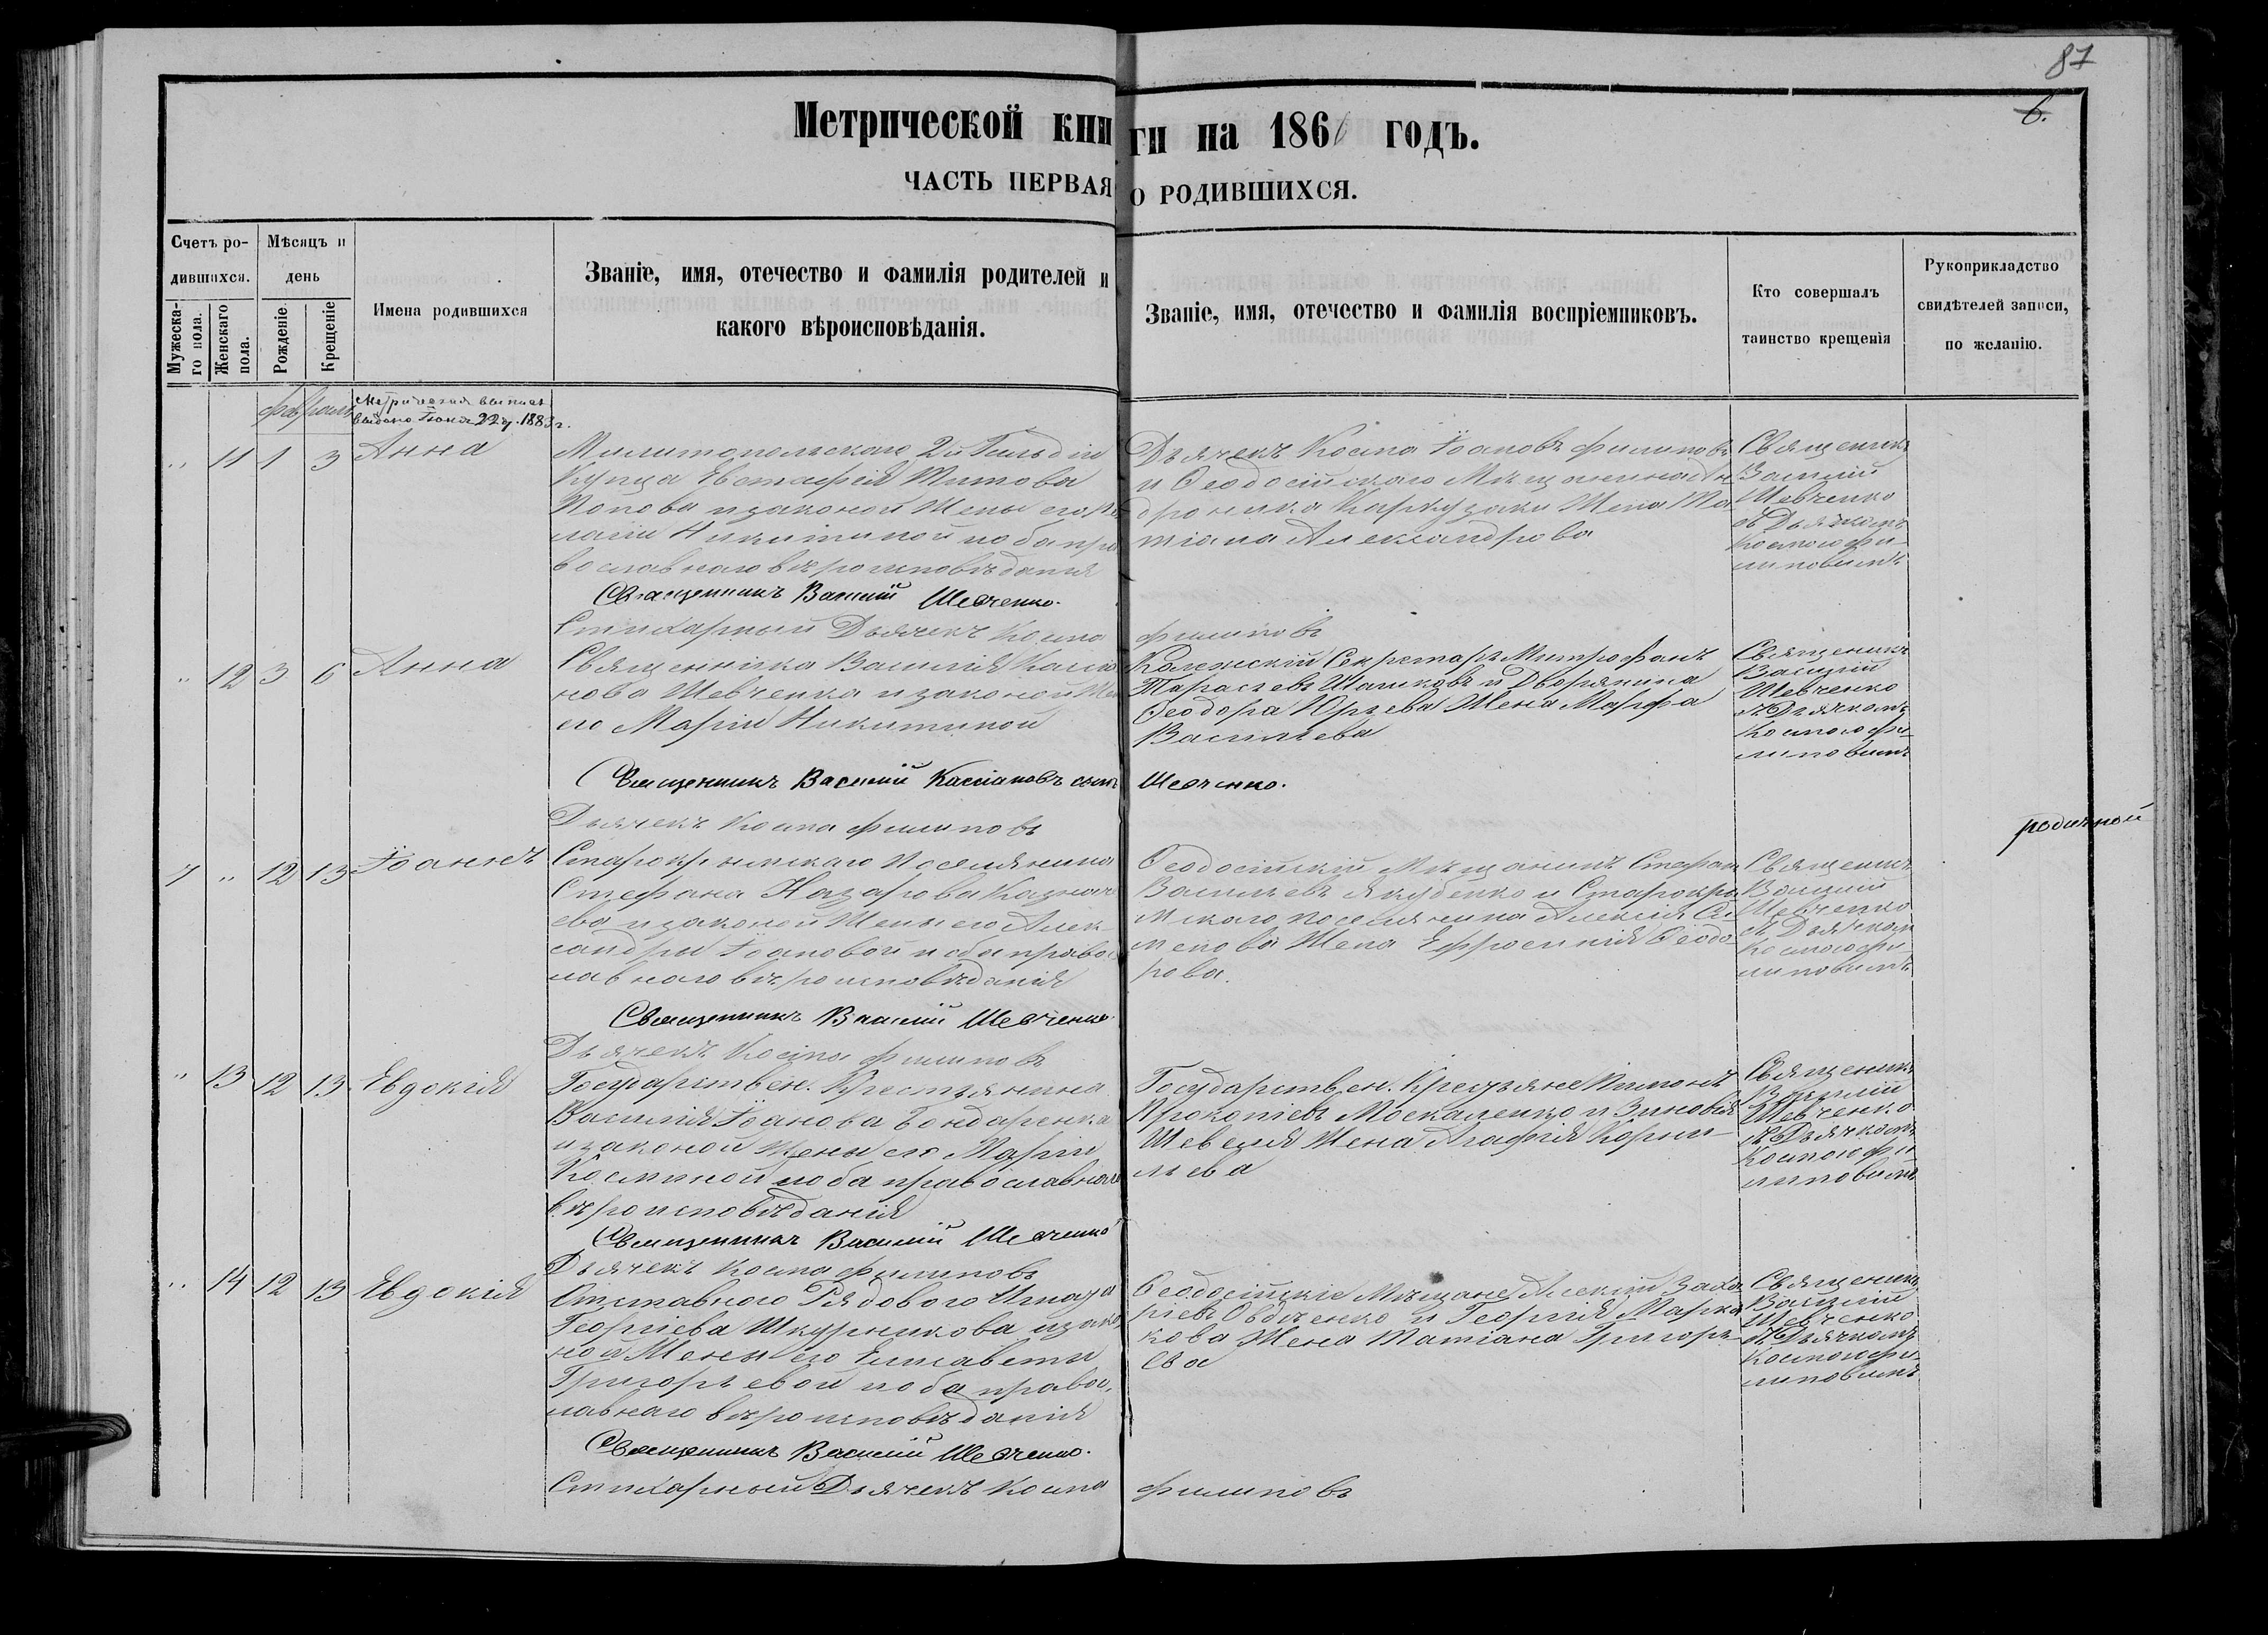 87
6.
Метрической книги на 186 годъ.
ЧАСТЬ ПЕРВАЯ О РОДИВШИХСЯ.
Счетъ ро-
дившихся.
Мужеска-
го пола.
Женскаго
пола.
Мѣсяцъ и
день
Рожденіе
Крещеніе
Имена родившихся
Званіе, имя, отечество и фамилія родителей и
какого вѣроисповѣданія.
Званіе, имя, отечество и фамилія воспріемниковъ.
Кто совершалъ
таинство крещенія
Рукоприкладство
свидѣтелей записи,
по желанію.
Метрическая
выдано 1883 г.
„ 11 1 3 Анна
Милитопольскаго 2й Гильдіи
Купца Евстафія Титова
Попова и законой Жены его
лагіи Никитиной
вославнаго вѣроисповѣданія
Священникъ Василій Шевченко.
Дьячекъ Косма Іоановъ Филиповъ
и Ѳеодосійскаго Мѣщанина
дроника Жена Та
тіана Александрова
Священикъ
Василій
Шевченко
съ Дьячкомъ
Космою Фи-
липовимъ
Стихарный Дьячекъ Косма Филиповъ
„ 12 3 6 Анна
Священника Василія Касія
нова Шевченка и законой Же
его Маріи Никитиной
Колежскій Секретарь Митрофанъ
Тарасіевъ и Дворянина
Ѳеодора Юрьева Жена Марфа
Васильева
Священикъ
Василій
Шевченко
съ Дьячкомъ
Космою Фи-
липовимъ
Священникъ Василій Кассіановъ сынъ Шевченко.
Дьячекъ Косма Филиповъ
7 „ 12 13 Іоаннъ
Старокрымскаго Поселянина
Стефана Назарова Казначе
ева и законой Жены его Алек-
сандры Іоановой и оба правос
лавнаго вѣроисповѣданія
Священникъ Василій Шевченко.
Ѳеодосійскій Мѣщанинъ
Васильевъ Якубенко и Старокры
мскаго поселянина Алексія
менова Жена Ефросинія Ѳеодо-
рова.
Священикъ
Василій
Шевченко
съ Дьячком
Космою Фи-
липовимъ
родичной
Дьячекъ Косма Филиповъ
„ 13 12 13 Евдокія
Государствен. Крестьянина
Василія Іоанова Бондаренка
и законой Жены его Маріи
Косминой и оба православнаго
вѣроисповѣданія
Священникъ Василій Шевченко
Государствен. Крестьяне Пимонъ
Прокопіевъ Москаленко и Зиновія
Шевеля Жена Агафія Корни-
льева
Священикъ
Василій
Шевченко
съ Дьячкомъ
Космою Фи
липовимъ
Дьячекъ Косма Филиповъ
„ 14 12 13 Евдокія
Отставного Рядового Игната
Георгіева Шкурникова и зако
ной Жены его Елисаветы
Григорьевой и оба правос.
лавнаго вѣроисповѣданія
Священникъ Василій Шевченко.
Ѳеодосійскіе Мѣщане Алексій Заха
ріевъ Овдѣенко и Георгія Марко
кова Жена Татіана Григорь-
ева
Священикъ
Василій
Шевченко
съ Дьячкомъ
Космою Фи-
липовимъ
Стихарный Дьячекъ Косма Филиповъ